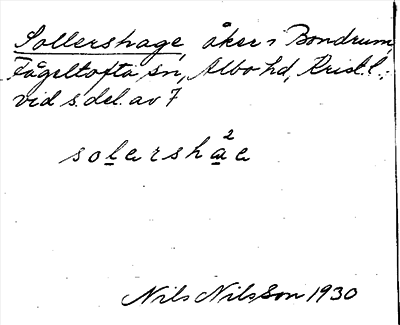 Sollershage, åker i Bondrum,
Fågeltofta sn, Albo hd, Krist. l.;
vid s. del. av 7
solershåe
2
a
Nils Nilsson 1930